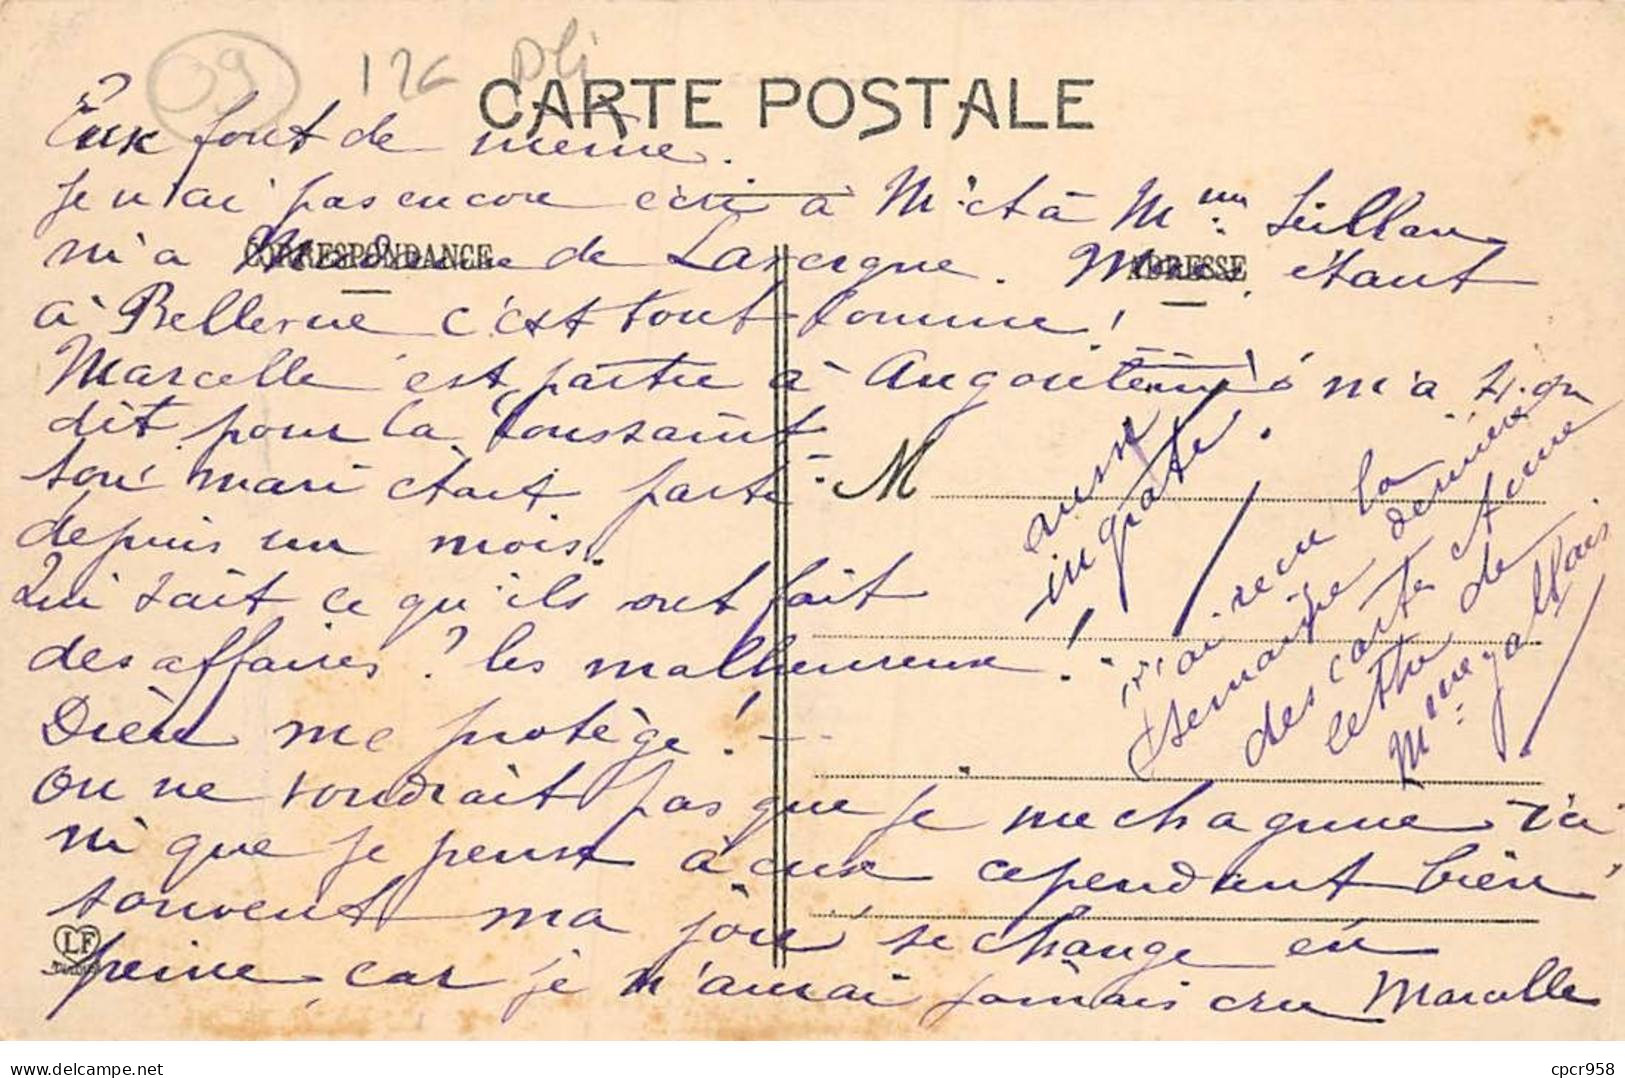 CARTE POSTALE
CORRESPONDANCE
ADRESSE
126
Eux font de meme.
je n'ai pas encore écri à M. et à Mme.
ni a Madame de Lavergne. étant
à Bellevue c'est tout comme!
Marcelle est partie à m'a
dit pour la Toussaint
son mari était parti
depuis un mois.
Qui sait ce qu'ils ont fait
des affaires? les malheureux!
Dieu me protège!
On ne voudrait pas que je me chagrine
ni que je pense à eux cependant bien
souvent ma joie se change en
peine, car je n'aurai jamais cru Marcelle
aussi
ingrate!
j'ai reçu la
semaine dernière
des cartes et une
lettre de
Mme.
M
LF
cpcr958